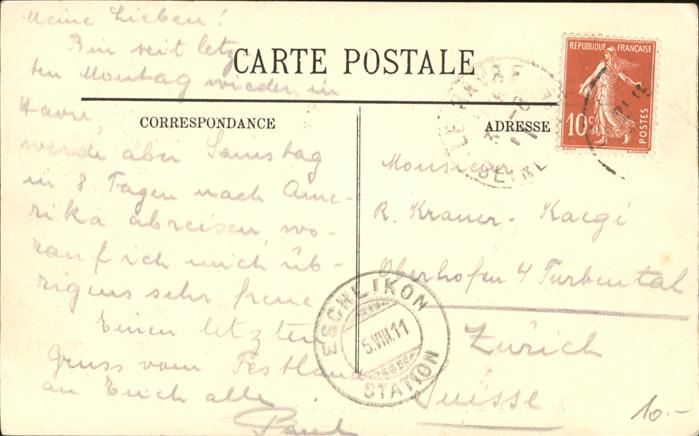 Meine Lieben!
Bin seit letz
ten Montag wieder in
Havre,
werde aber Samstag
in 8 Tagen nach Ame-
rika abreisen wo-
rauf ich mich üb-
rigens sehr freue
Einen letzten
Gruss vom Festland
an Euch alle
Paul
CARTE POSTALE
CORRESPONDANCE
ADRESSE
REPUBLIQUE FRANÇAISE
10c
POSTES
LE HAVRE
SEINE
Monsieur
R. Krauer-Kaegi
Oberhofen 4 Turbental
Zürich
Suisse
ESCHLIKON
5.VIII.11
STATION
10.-